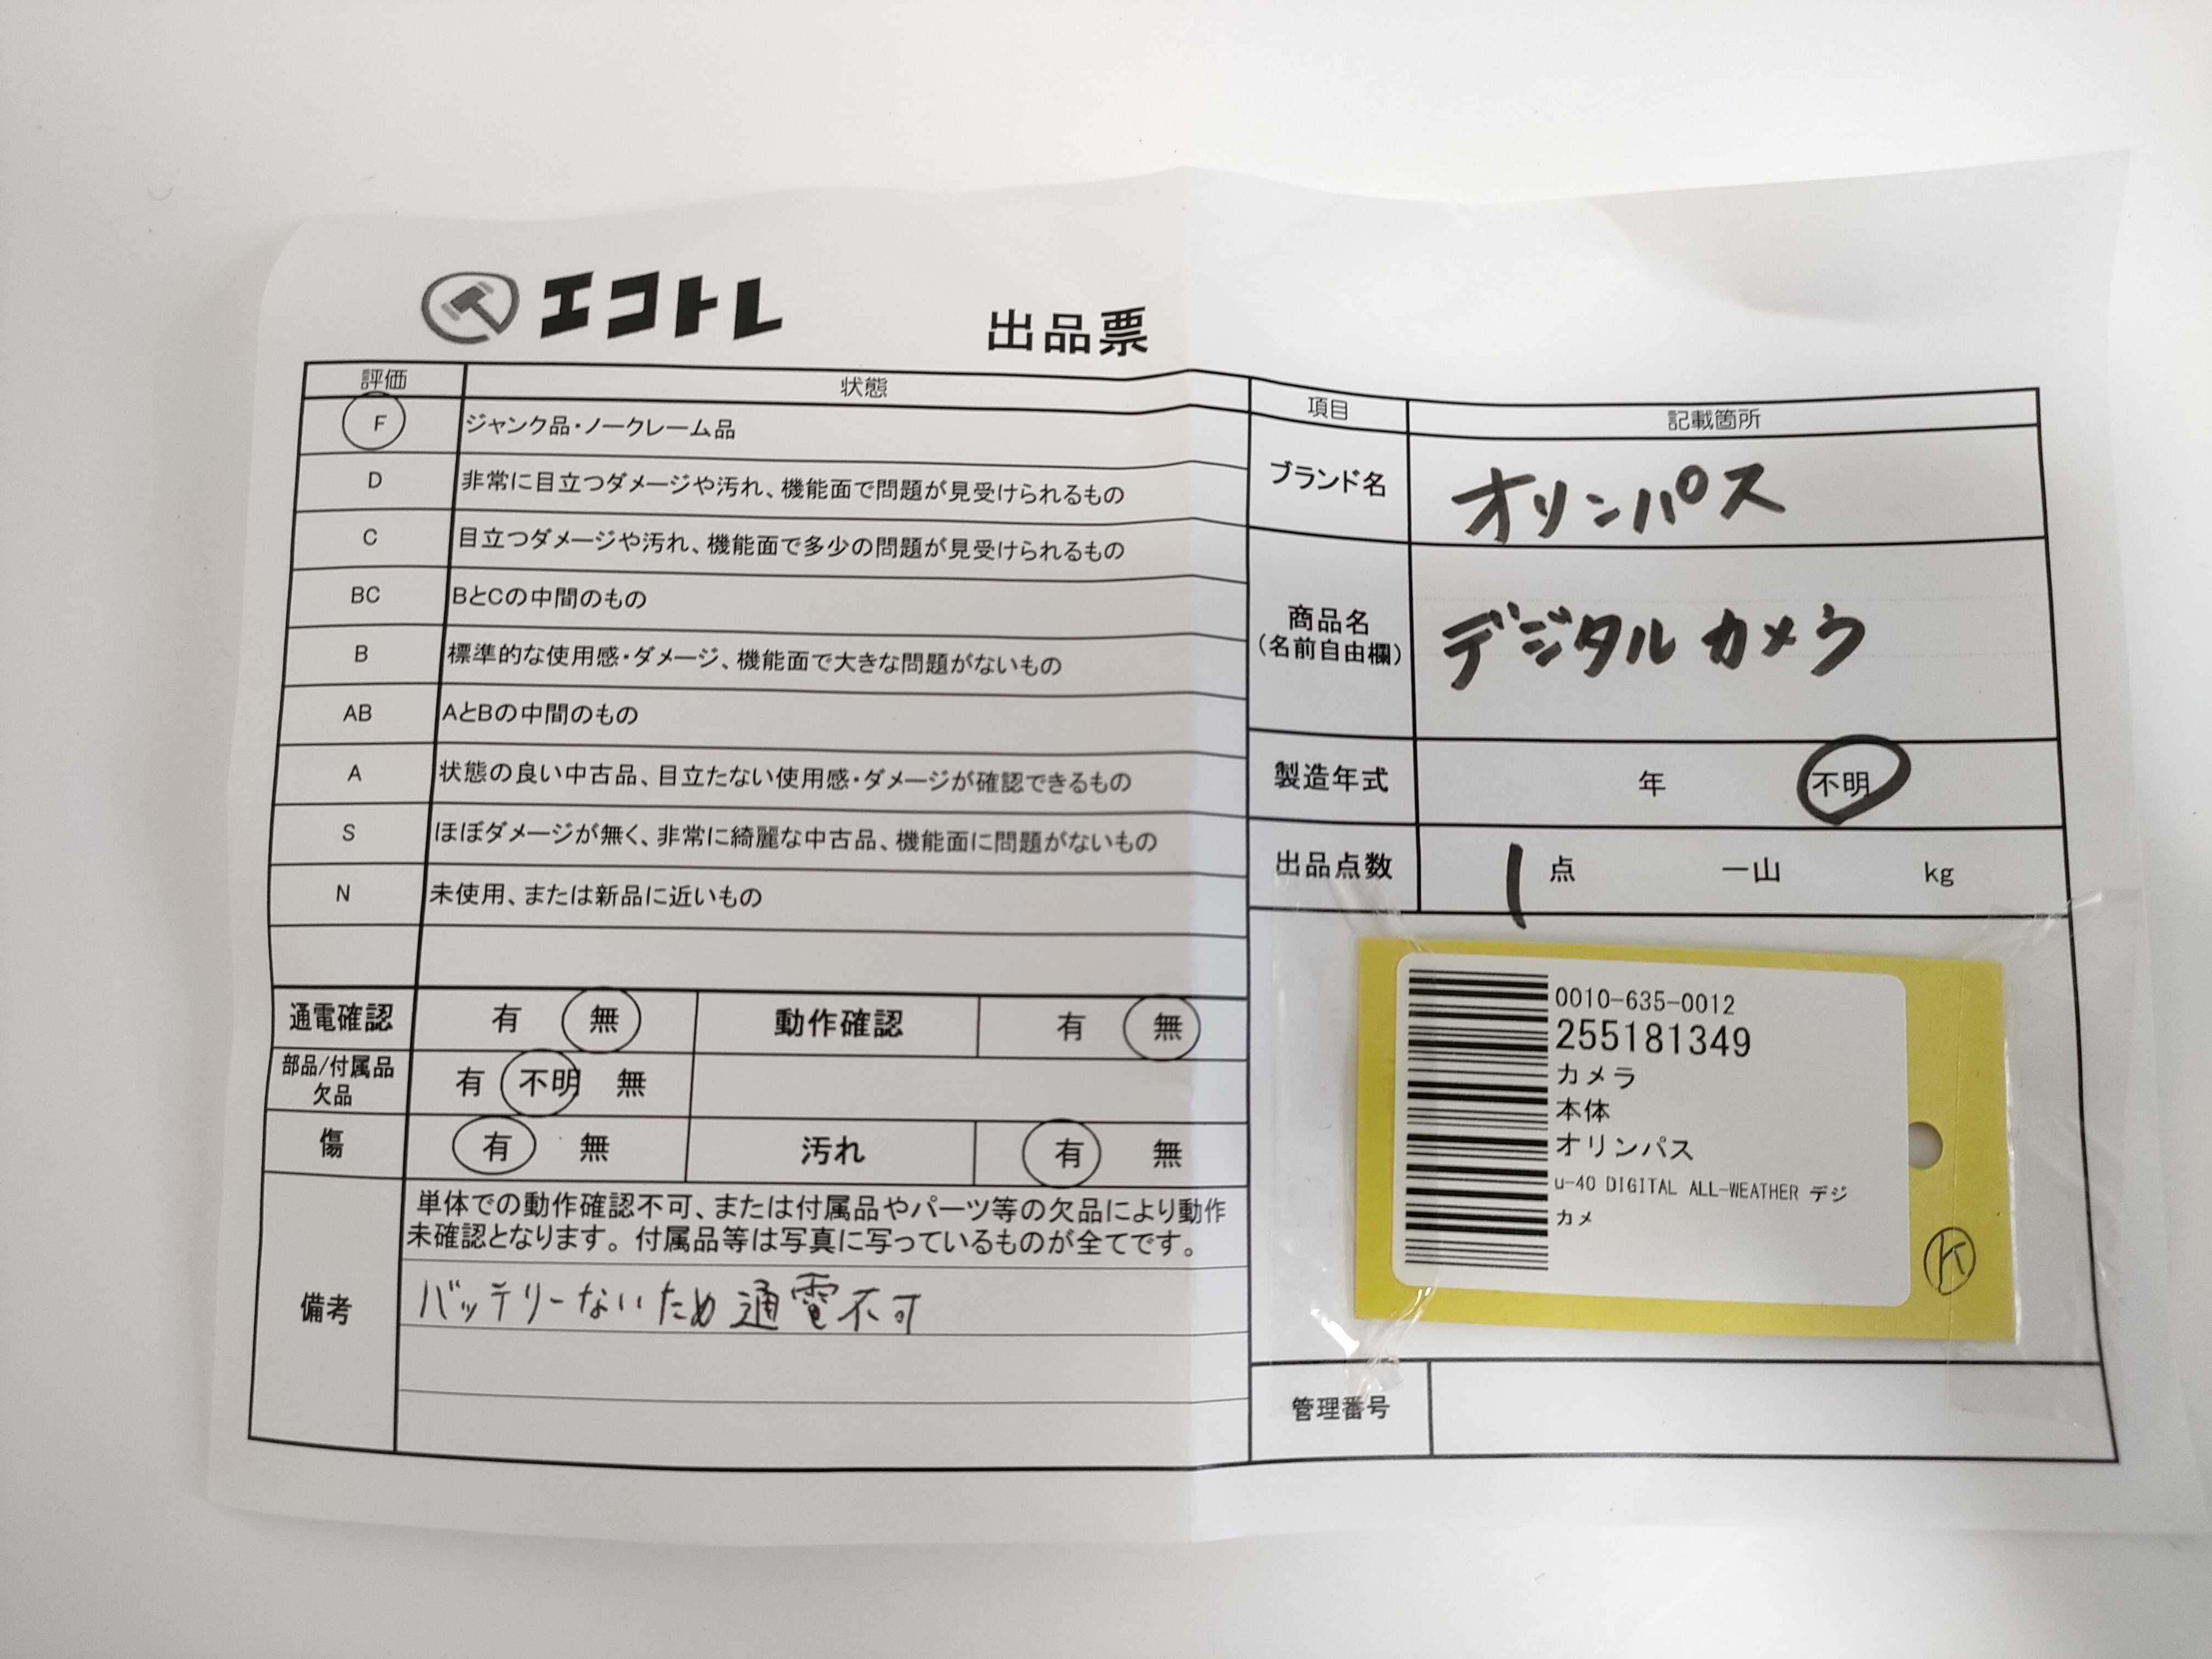 エコトレ
出品票
評価 状態
F ジャンク品・ノークレーム品
D 非常に目立つダメージや汚れ、機能面で問題が見受けられるもの
C 目立つダメージや汚れ、機能面で多少の問題が見受けられるもの
BC BとCの中間のもの
B 標準的な使用感・ダメージ、機能面で大きな問題がないもの
AB AとBの中間のもの
A 状態の良い中古品、目立たない使用感・ダメージが確認できるもの
S ほぼダメージが無く、非常に綺麗な中古品、機能面に問題がないもの
N 未使用、または新品に近いもの
通電確認 有 無 動作確認 有 無
部品/付属品
欠品
有 不明 無
傷 有 無 汚れ 有 無
備考
単体での動作確認不可、または付属品やパーツ等の欠品により動作
未確認となります。付属品等は写真に写っているものが全てです。
バッテリーないため通電不可
項目 記載箇所
ブランド名 オリンパス
商品名
(名前自由欄)
デジタルカメラ
製造年式 年 不明
出品点数 1 点 一山 kg
0010-635-0012
255181349
カメラ
本体
オリンパス
u-40 DIGITAL ALL-WEATHER デジ
カメ
K
管理番号